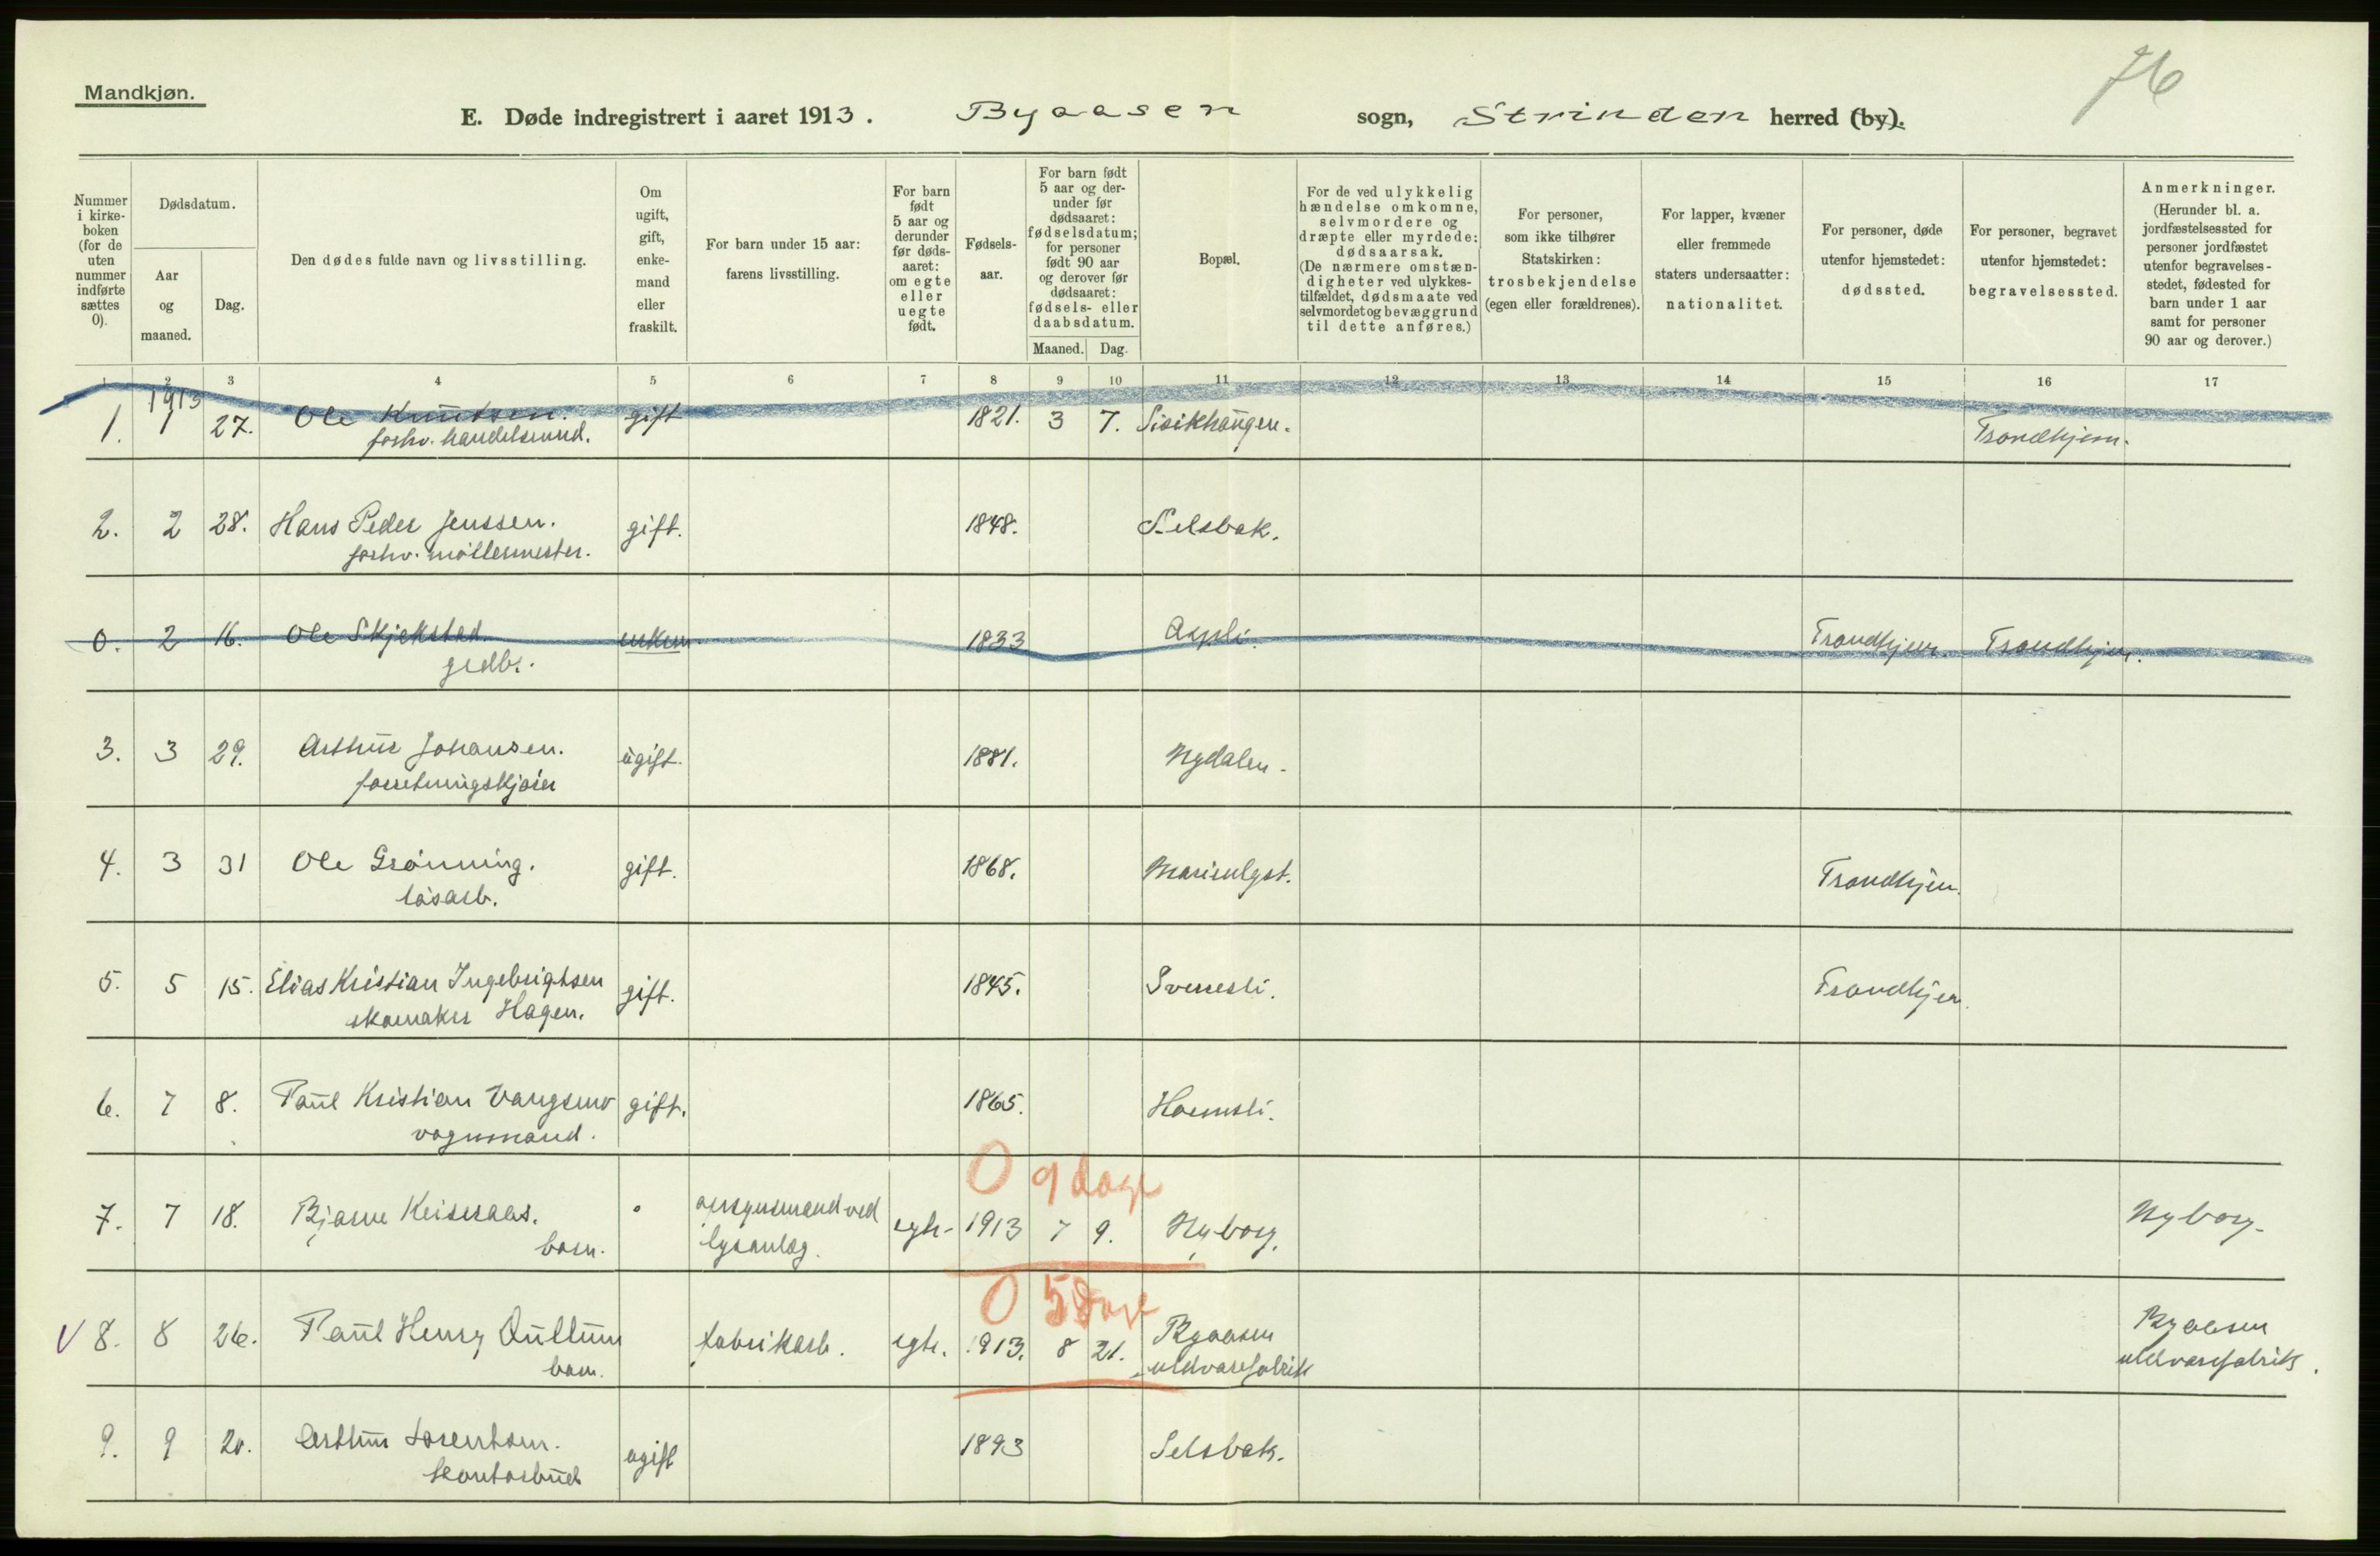 76
Mandkjøn.
E. Døde indregistrert i aaret 1913. Byaasen sogn, Strinden herred (by).
Nummer i kirke-boken (for de uten nummer indførte sættes 0).
Dødsdatum.
Aar og maaned.
Dag.
Den dødes fulde navn og livsstilling.
Om ugift, gift, enke-mand eller fraskilt.
For barn under 15 aar: farens livsstilling.
For barn født 5 aar og derunder før døds-aaret: om egte eller uegte født.
Fødsels-aar.
For barn født 5 aar og der-under før dødsaaret: fødselsdatum; for personer født 90 aar og derover før dødsaaret: fødsels- eller daabsdatum.
Maaned. Dag.
Bopæl.
For de ved ulykkelig hændelse omkomne, selvmordere og dræpte eller myrdede: dødsaarsak. (De nærmere omstæn-digheter ved ulykkes-tilfældet, dødsmaate ved selvmordet og bevæggrund til dette anføres.)
For personer, som ikke tilhører Statskirken: trosbekjendelse (egen eller forældrenes).
For lapper, kvæner eller fremmede staters undersaatter: nationalitet.
For personer, døde utenfor hjemstedet: dødssted.
For personer, begravet utenfor hjemstedet: begravelsessted.
Anmerkninger. (Herunder bl. a. jordfæstelsessted for personer jordfæstet utenfor begravelses-stedet, fødested for barn under 1 aar samt for personer 90 aar og derover.)
1 2 3 4 5 6 7 8 9 10 11 12 13 14 15 16 17
1913
1. 1 27. Ole Knutsen. gift 1821. 3 7. Sisikhaugen. Trondhjem.
forhv. handelsmnd.
2. 2 28. Hans Peder Jenssen. gift. 1848. Selsbak.
forhv. møllemester.
0. 2 16. Ole Skjekstad enkem. 1833 Trondhjem. Trondhjem.
grdbr.
3. 3 29. Arthur Johansen. ugift. 1881. Nydalen.
forretningskjører
4. 3 31 Ole Grønning. gift. 1868. Marienlyst. Trondhjem.
løsarb.
5. 5 15. Elias Kristian Ingebrigtsen gift. 1845. Sverresli. Trondhjem.
skomaker Hagen.
6. 7 8. Paul Kristian Vangsmo gift. 1865. Havnsli.
vognmand.
0 9 dage
7. 7 18. Bjarne Keiseraas. opsynsmand ved egte 1913 7 9. Nyborg. Nyborg.
barn. lysanlæg.
0 5 Dage
V 8. 8 26. Paul Henry Qullum fabrikarb. egte. 1913. 8 21. Byaasen Byaasen
barn. uldvarefabrik uldvarefabrik.
9. 9 20. Arthur Lorentsen. ugift 1893 Selsbak.
kontorbud